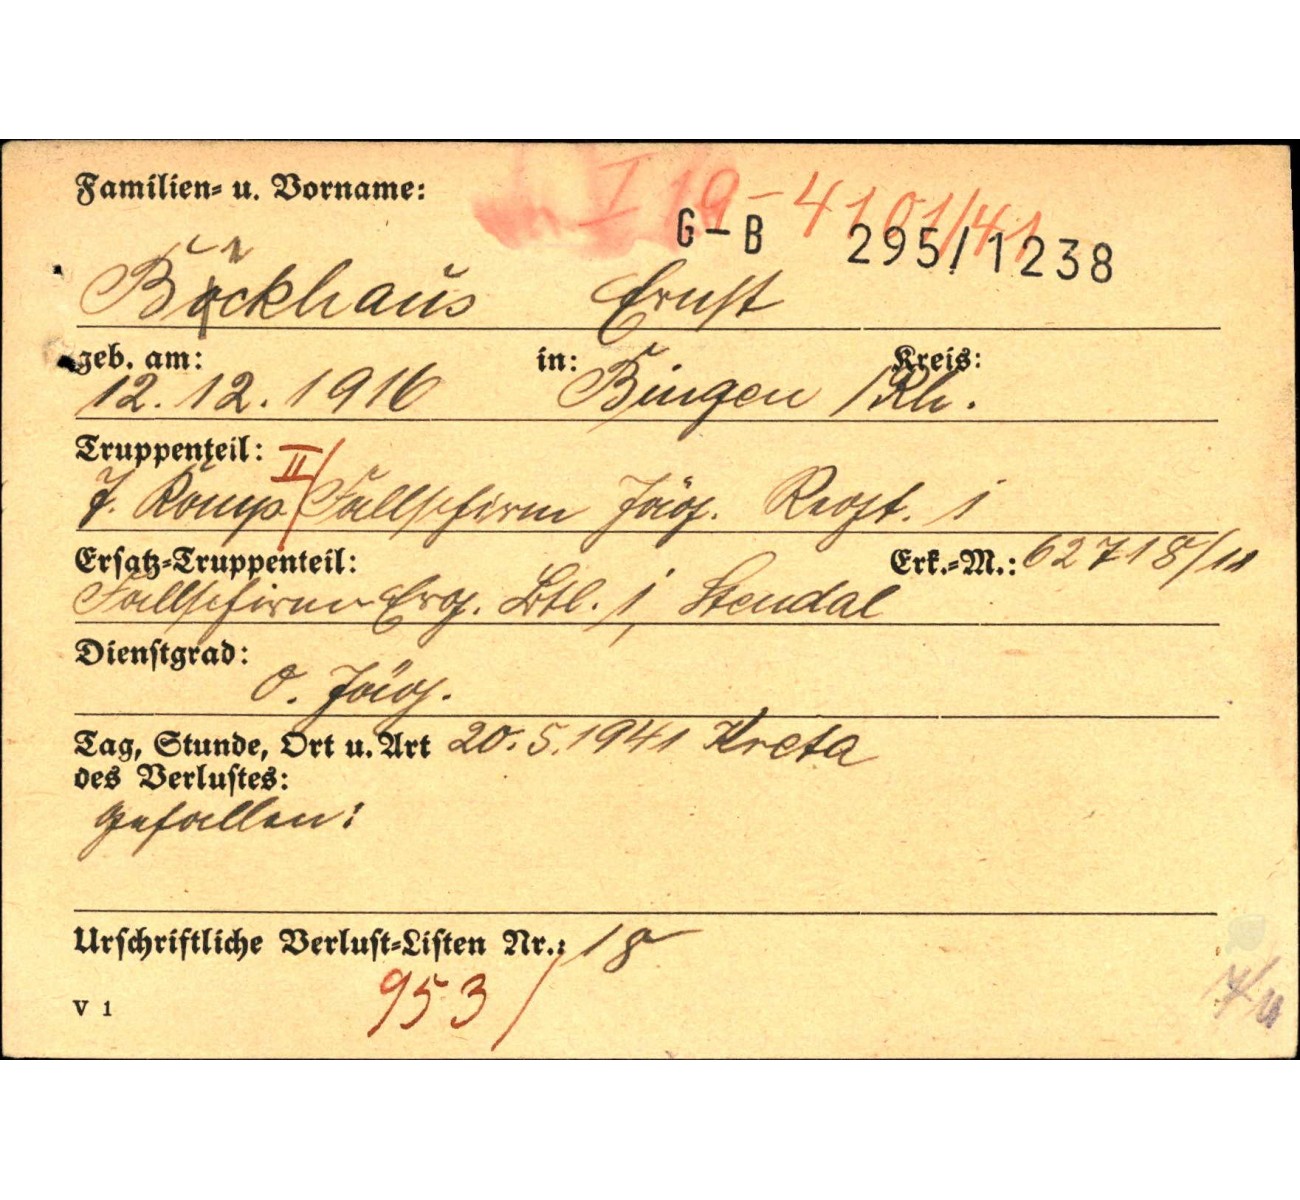 Familien- u. Vorname:
I 19-4101/41
G-B 295/1238
Böckhaus Ernst
geb. am: in: Kreis:
12.12.1916 Bingen /Rh.
Truppenteil:
7. Komp II/ Fallschirm Jäg. Regt. 1
Ersatz-Truppenteil: Erk.-M.: 62718/11
Fallschirm Erg. Btl. 1, Stendal
Dienstgrad:
O. Jäg.
Tag, Stunde, Ort u. Art 20.5.1941 Kreta
des Verlustes:
gefallen:
Urschriftliche Verlust-Listen Nr.: 18
953/
V 1